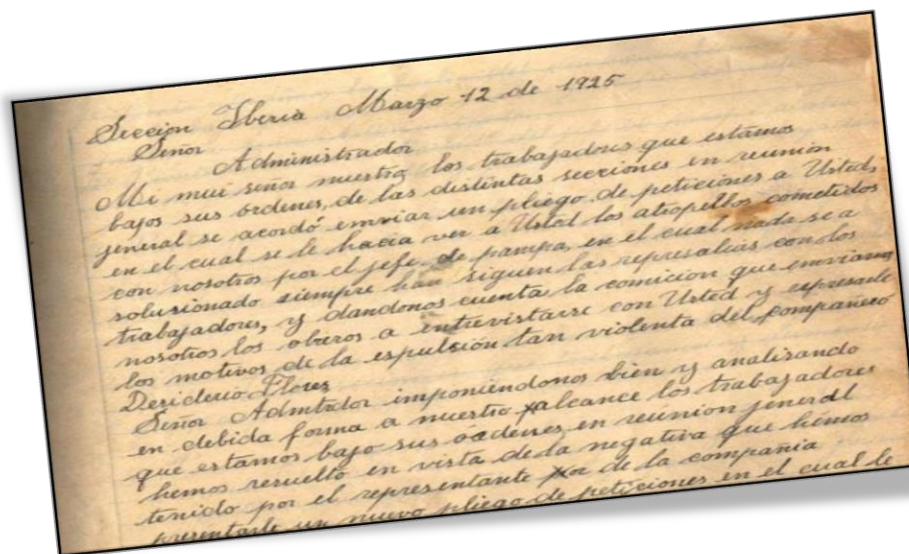 Seccion Iberia Marzo 12 de 1925
Señor
Administrador
Mi mui señor nuestro, los trabajadores que estamos
bajos sus ordenes, de las distintas secciones en reunion
jeneral se acordó emviar un pliego de peticiones a Usted,
en el cual se le hacia ver a Usted los atropellos cometidos
con nosotros por el jefe de pampa, en el cual nada se a
solusionado siempre han siguen las represalias con los
trabajadores, y dandonos cuenta la comicion que emviamos
nosotros los obreros a entrevistarse con Usted y espresarle
los motivos de la espulsión tan violenta del compañero
Desiderio Flores
Señor Admtrdor imponiéndonos bien y analisando
en debida forma a nuestro alcance los trabajadores
que estamos bajo sus órdenes en reunion jeneral
hemos resuelto en vista de la negativa que hémos
tenido por el representante de la compañia
presentarle un nuevo pliego de peticiones en el cual le